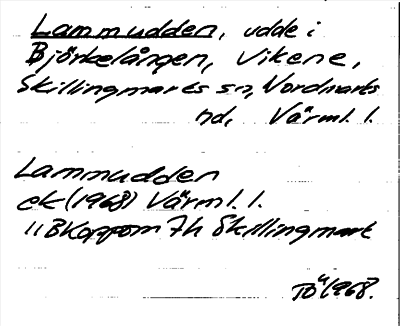 Lammudden, udde i
Björkelången, Vikene,
Skillingmarks sn, Nordmarks
hd, Värml. l.
Lammudden
ek (1968) Värml. l.
11B Koppom 7h Skillingmark
1968.